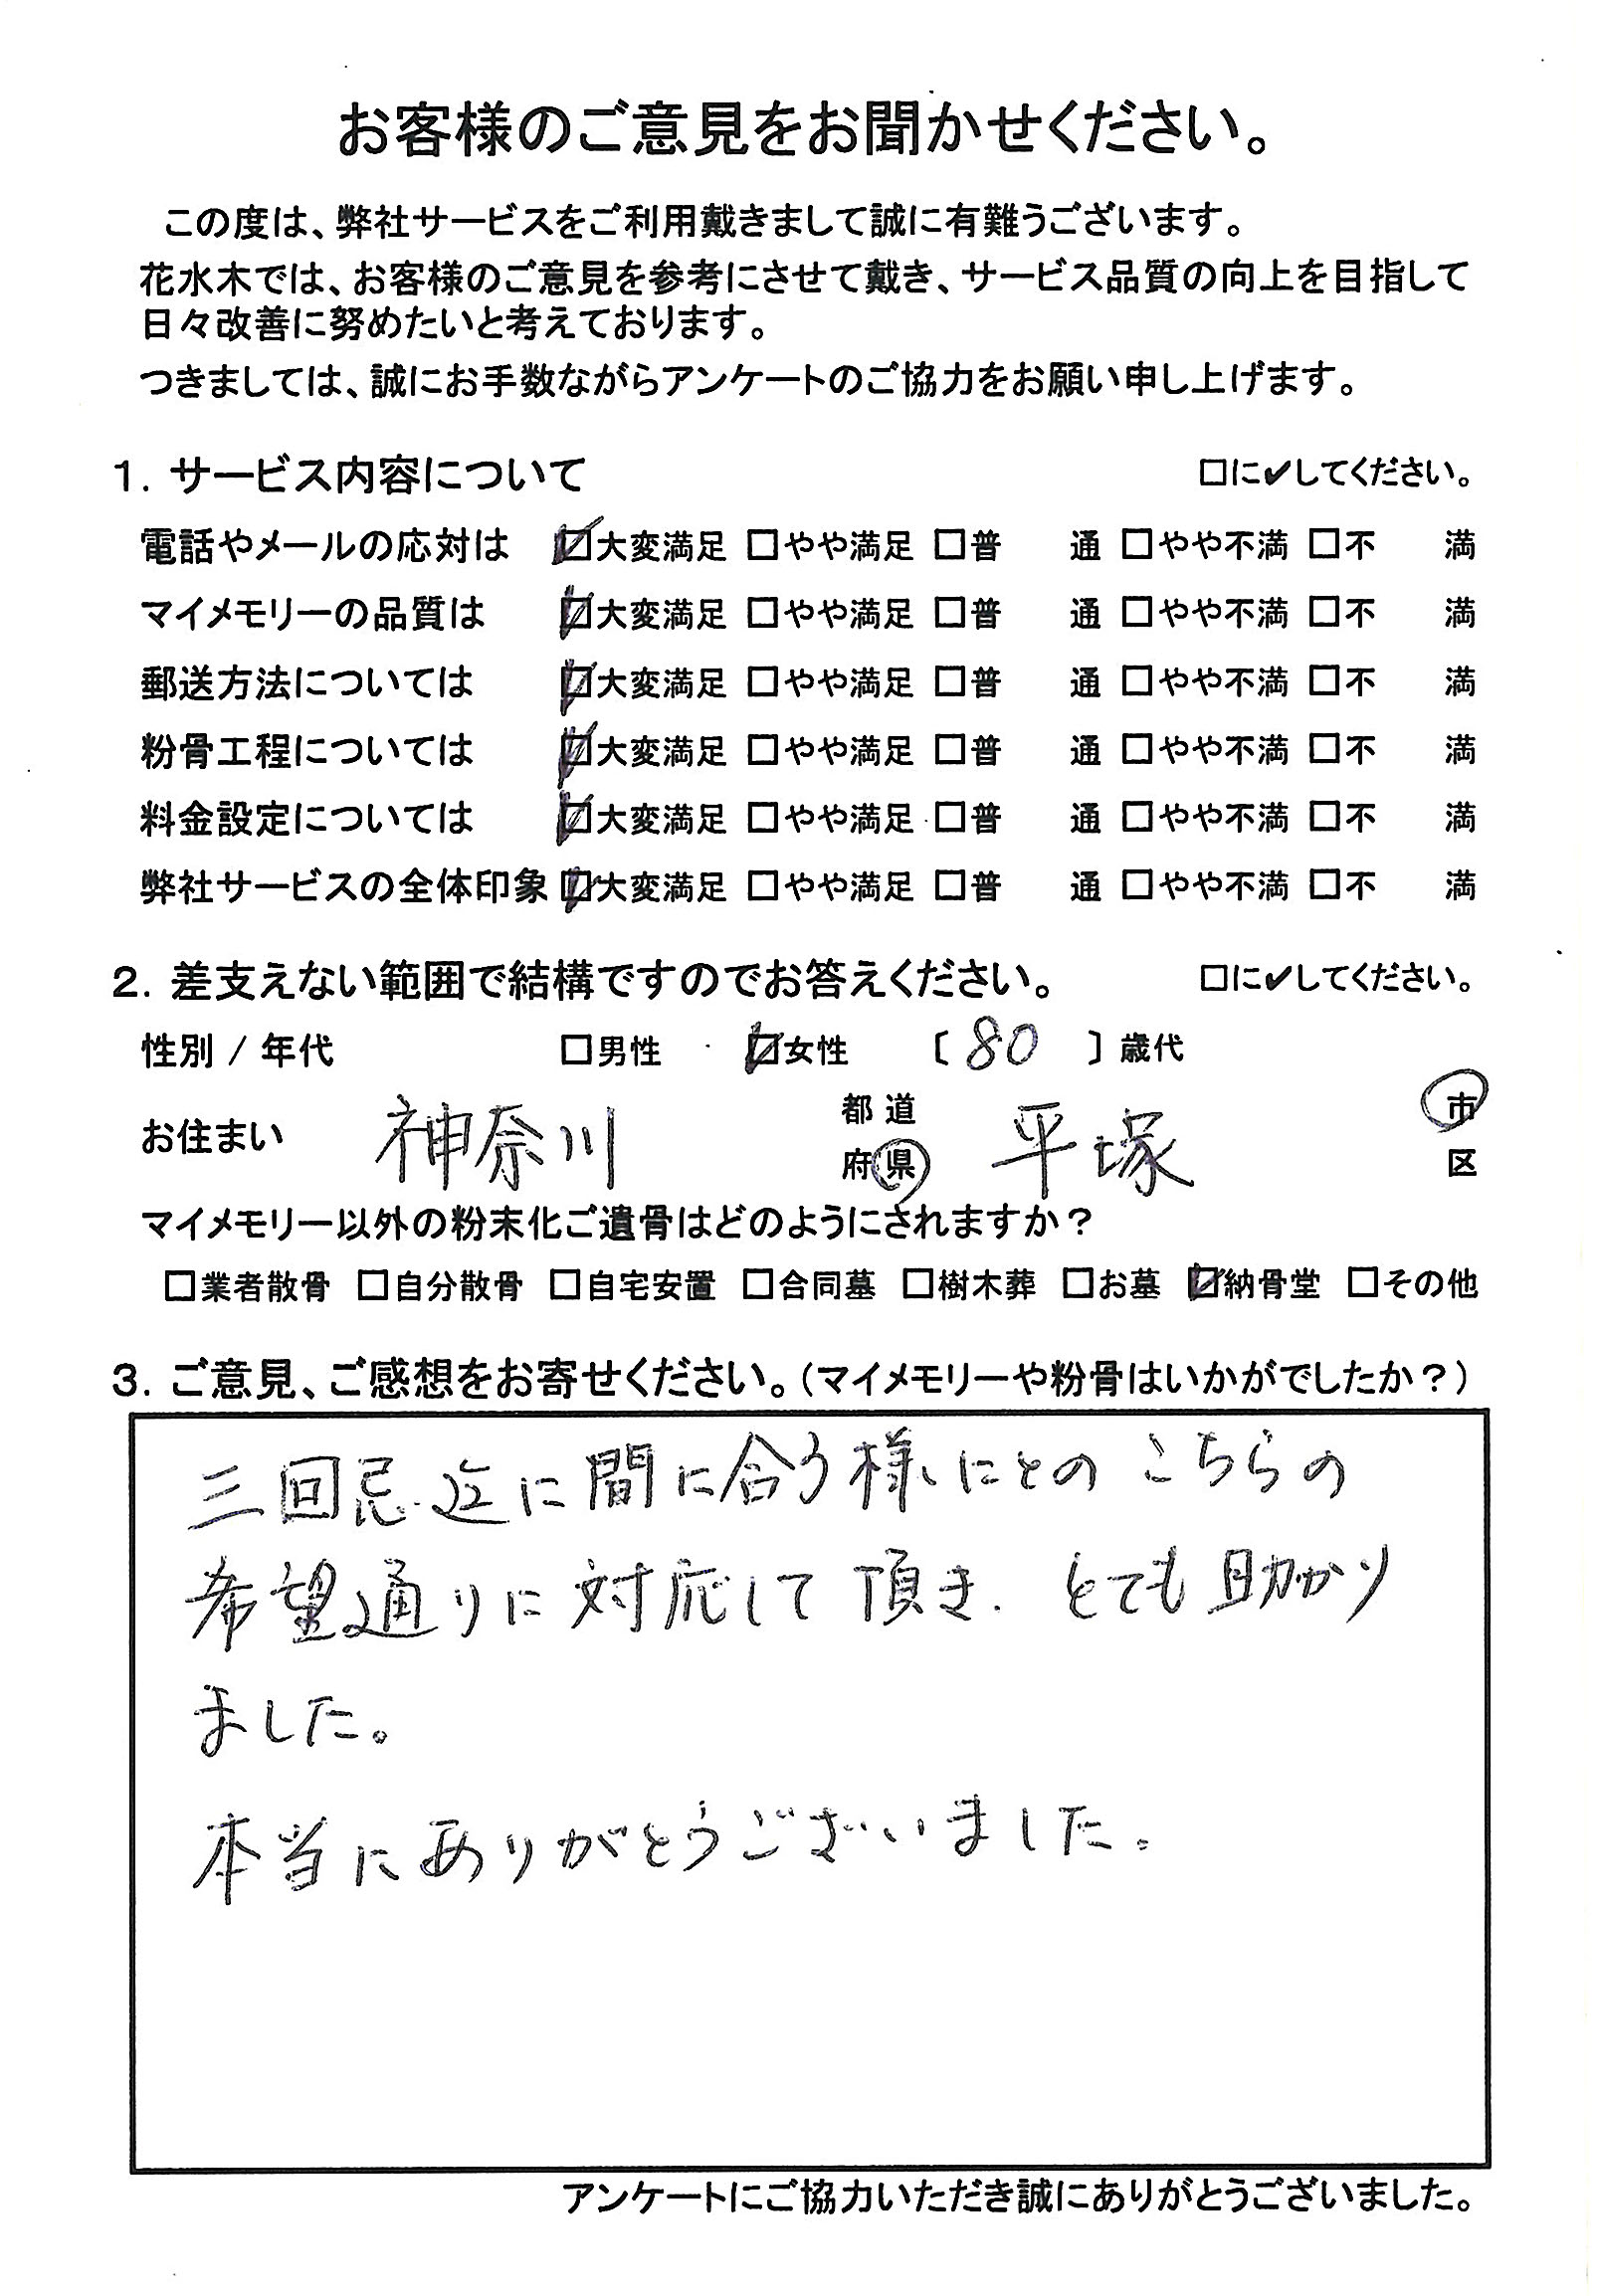 お客様のご意見をお聞かせください。
この度は、弊社サービスをご利用戴きまして誠に有難うございます。
花水木では、お客様のご意見を参考にさせて戴き、サービス品質の向上を目指して
日々改善に努めたいと考えております。
つきましては、誠にお手数ながらアンケートのご協力をお願い申し上げます。
1. サービス内容について □に✔してください。
電話やメールの応対は ☑大変満足 □やや満足 □普 通 □やや不満 □不 満
マイメモリーの品質は ☑大変満足 □やや満足 □普 通 □やや不満 □不 満
郵送方法については ☑大変満足 □やや満足 □普 通 □やや不満 □不 満
粉骨工程については ☑大変満足 □やや満足 □普 通 □やや不満 □不 満
料金設定については ☑大変満足 □やや満足 □普 通 □やや不満 □不 満
弊社サービスの全体印象 ☑大変満足 □やや満足 □普 通 □やや不満 □不 満
2. 差支えない範囲で結構ですのでお答えください。 □に✔してください。
性別 / 年代 □男性 ☑女性 〔 80 〕歳代
お住まい 神奈川 都道府県 平塚 市区
マイメモリー以外の粉末化ご遺骨はどのようにされますか？
□業者散骨 □自分散骨 □自宅安置 □合同墓 □樹木葬 □お墓 ☑納骨堂 □その他
3. ご意見、ご感想をお寄せください。（マイメモリーや粉骨はいかがでしたか？）
三回忌迄に間に合う様にとのこちらの
希望通りに対応して頂き、とても助かり
ました。
本当にありがとうございました。
アンケートにご協力いただき誠にありがとうございました。